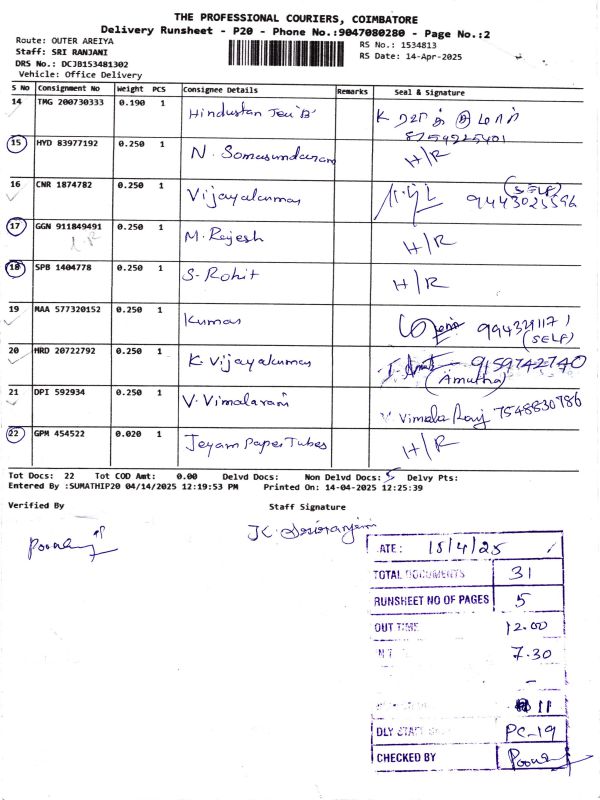 THE PROFESSIONAL COURIERS, COIMBATORE
Delivery Runsheet - P20 - Phone No.:9047080280 - Page No.:2
Route: OUTER AREIYA
Staff: SRI RANJANI
DRS No.: DCJB153481302
Vehicle: Office Delivery
RS No.: 1534813
RS Date: 14-Apr-2025
S No Consignment No Weight PCS Consignee Details Remarks Seal & Signature
14 TMG 200730333 0.190 1 Hindustan Teu 'B' K
8754225401
15 HYD 83977192 0.250 1 N. Somasundaram H/R
16 CNR 1874782 0.250 1 Vijayakumar (SELF) 9443025596
17 GGN 911849491 0.250 1 M. Rajesh H/R
18 SPB 1404778 0.250 1 S. Rohit H/R
19 MAA 577320152 0.250 1 Kumar 9943291171
(SELF)
20 HRD 20722792 0.250 1 K. Vijayakumar 9159742740
(Amutha)
21 DPI 592934 0.250 1 V. Vimalarani V Vimala Rany 7548830786
22 GPM 454522 0.020 1 Jeyam Paper Tubes H/R
Tot Docs: 22 Tot COD Amt: 0.00 Delvd Docs: Non Delvd Docs: 5 Delvy Pts:
Entered By :SUMATHIP20 04/14/2025 12:19:53 PM Printed On: 14-04-2025 12:25:39
Verified By Staff Signature
ATE: 15/4/25
TOTAL DOCUMENTS 31
RUNSHEET NO OF PAGES 5
OUT TIME 12.00
7.30
-
11
DLY STAFF PC-19
CHECKED BY